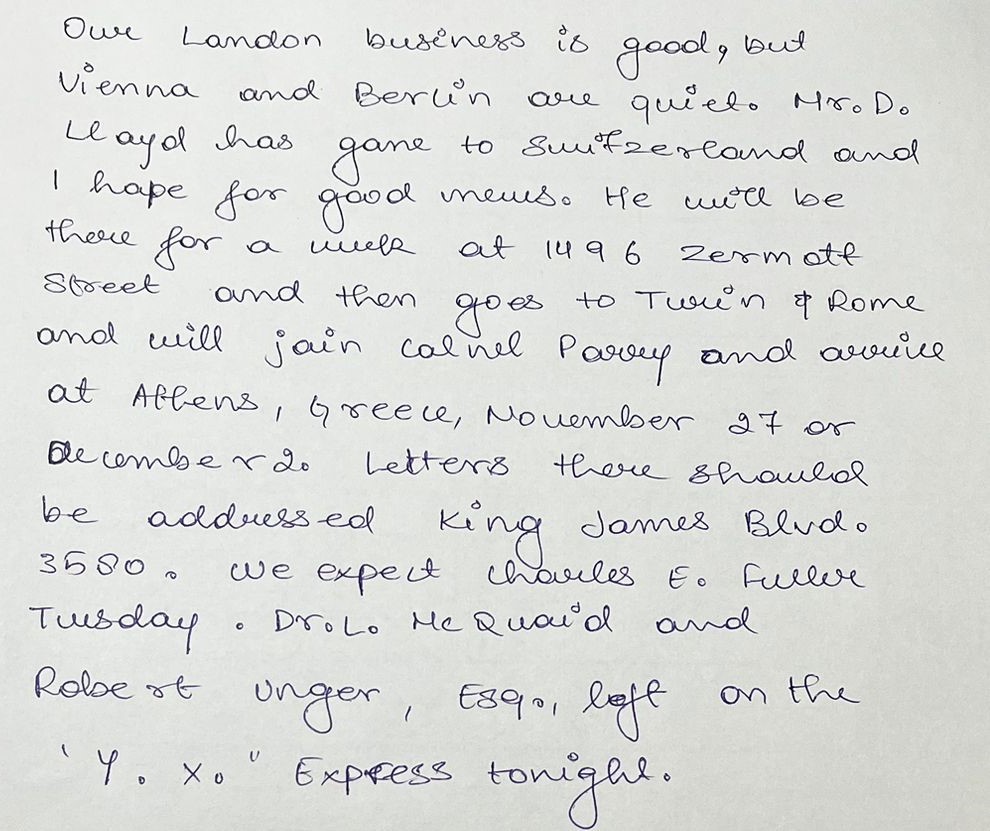 Our London business is good, but
Vienna and Berlin are quiet. Mr. D.
Lloyd has gone to Switzerland and
I hope for good news. He will be
there for a week at 1496 Zermott
Street and then goes to Turin & Rome
and will join Colnel Parry and arrive
at Athens, Greece, November 27 or
December 2. Letters there should
be addressed King James Blvd.
3580. We expect Charles E. Fuller
Tuesday. Dr. L. McQuaid and
Robert Unger, Esq., left on the
'Y. X." Express tonight.